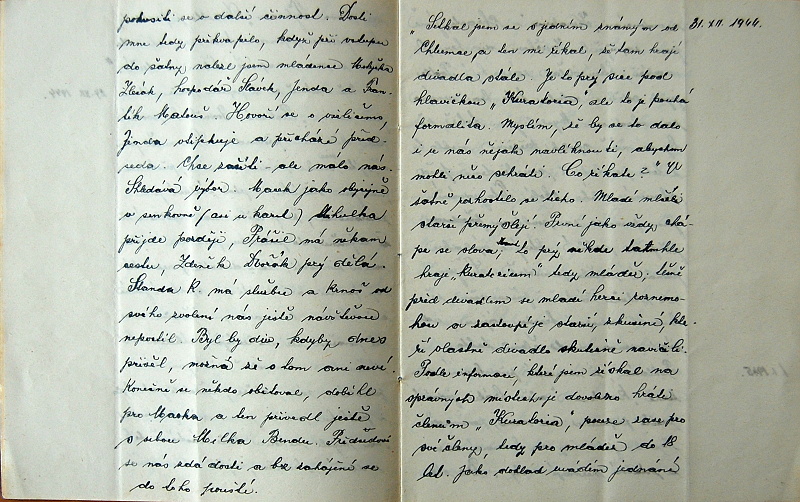 pokusiti se o další činnost. Dosti
mne tedy překvapilo, když při vstupu
do šatny nalezl jsem mládence
hospodář Slávek, Jenda a Fran-
tík Mateuš. Hovoří se o
Jenda a přichází před-
seda. Chce začíti – ale málo nás.
Shledává výbor. Marek jako obyčejně
v senkovně (asi u karet)
přijde později, Prášil má někam
cestu, Zdeněk Dvořák prý dělá.
Standa K. má službu a Krnoš od
svého zvolení nás ještě návštěvou
nepoctil. Byl by div, kdyby dnes
přišel, možná že o tom ani neví.
Konečně se někdo obětoval, doběhl
pro Marka a ten přivedl ještě
s sebou Milka Bendu. Předsedovi
se nás zdá dosti a bez zahájení se
do toho pouští.
31. XII. 1944.
„Setkal jsem se s jedním známým od
Chlumce a ten mi říkal, že tam hrají
divadla stále. Je to prý sice pod
hlavičkou „Kuratoria", ale to je pouhá
formalita. Myslím, že by se to dalo
i u nás nějak navléknouti, abychom
mohli něco sehráti. Co říkáte?" V
šatně rozhostilo se ticho. Mladí mlčeli
starší přemýšlejí. První jako vždy, chá-
pe se slova, to prý někde takhle
hrají „Kuratorium" tedy mládež, těsně
před divadlem se mladí herci roznemo-
hou a zastoupí je starší, zkušení, kte-
ří vlastně divadlo skutečně nacvičili.
Podle informací, které jsem získal na
správných místech je dovoleno hráti
členům „Kuratoria", pouze zase pro
své členy, tedy pro mládež do 18
let. Jako doklad uvádím jednání